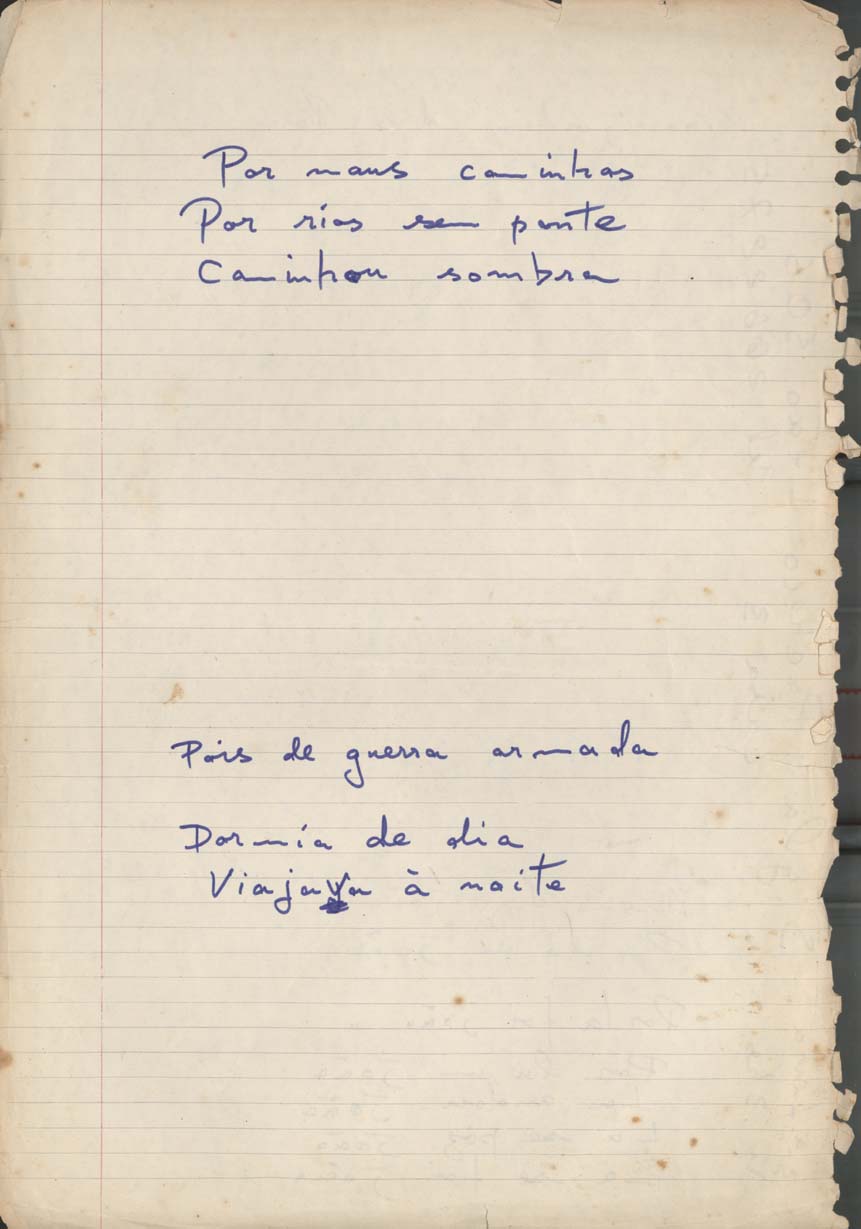 Por maus caminhos
Por rios sem ponte
Caminhou sombra
Pois de guerra armada
Dormia de dia
Viajava à noite